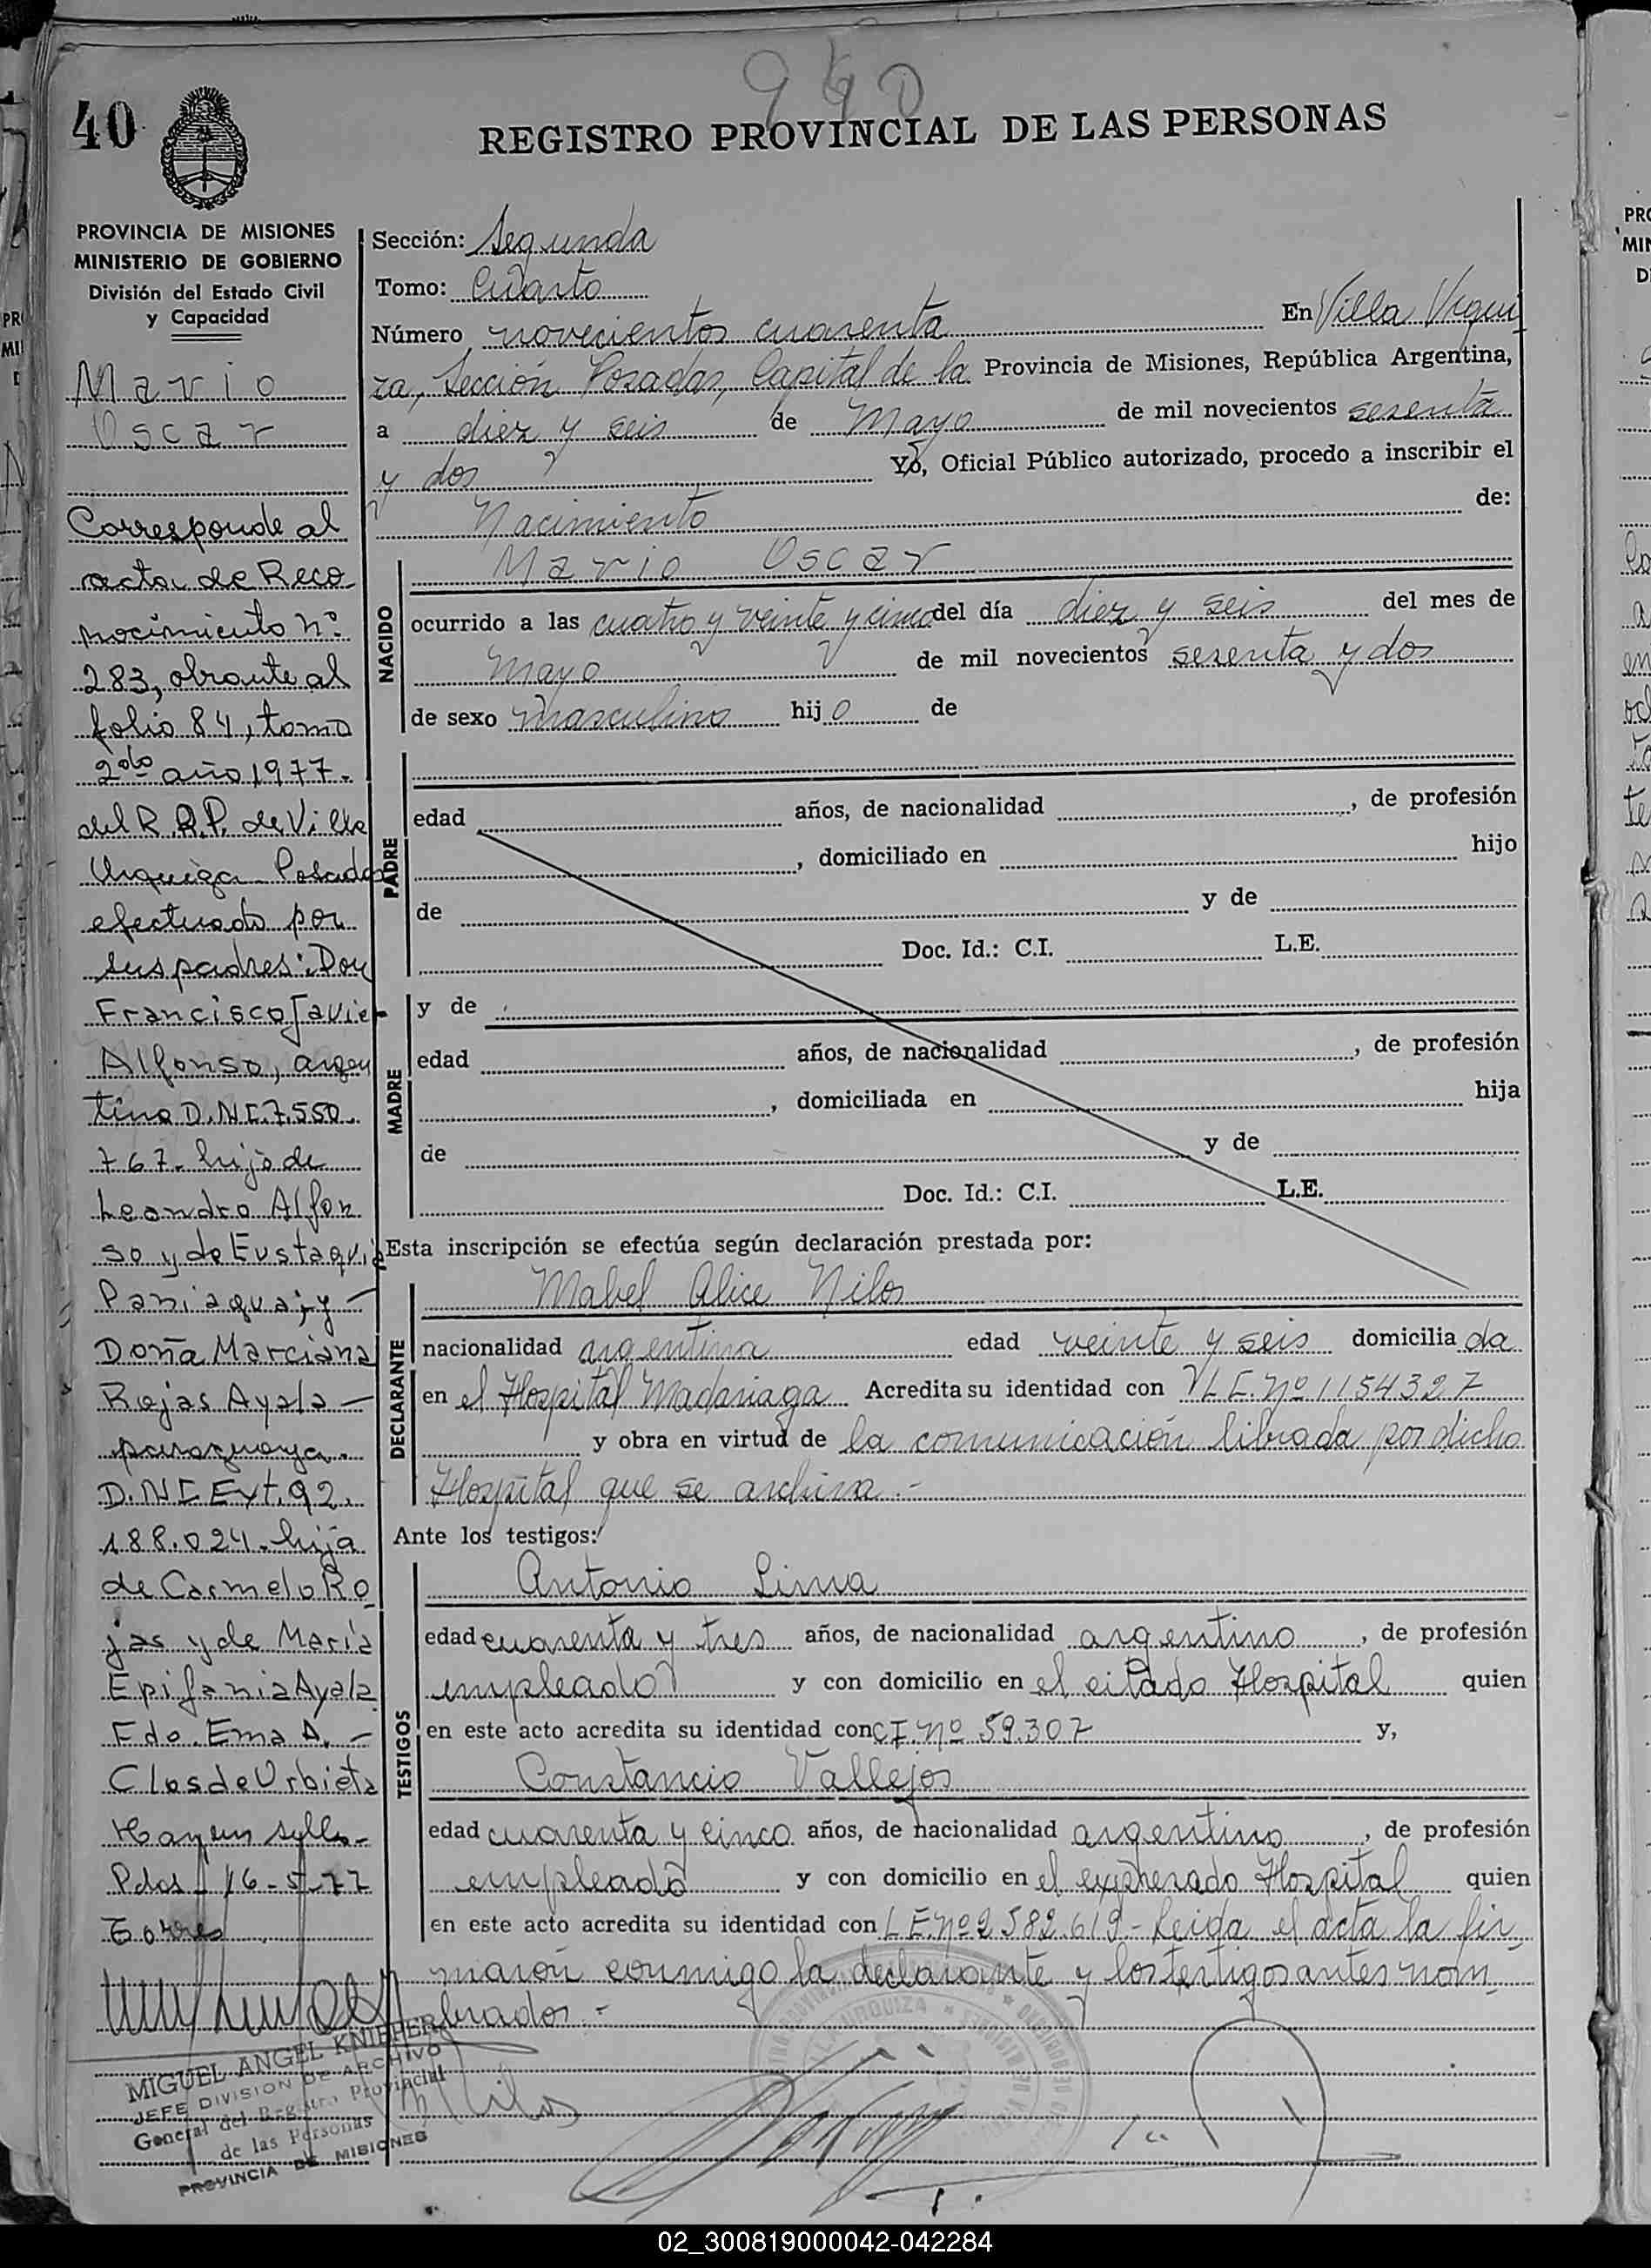 940
40
REGISTRO PROVINCIAL DE LAS PERSONAS
PROVINCIA DE MISIONES
MINISTERIO DE GOBIERNO
División del Estado Civil
y Capacidad
Mario
Oscar
Corresponde al
acta de Reco
nocimiento nº
283, obrante al
folio 84, tomo
2do año 1977.
del R.P. de Villa
Urquiza Posadas
efectuado por
sus padres: Don
Francisco Javier
Alfonso, argen
tino D.N.I. 7.550.
767. hijo de
Leandro Alfon
so y de Eustaquia
Paniagua; y
Doña Marciana
Rojas Ayala
paraguaya.
D.N.I Ext. 92.
188.024. hija
de Carmelo Ro
jas y de María
Epifania Ayala
Fdo. Ema A.
Clos de Urbieta
Hay un sello
Pdas 16-5-77
Torres
MIGUEL ANGEL KNIPPER
JEFE DIVISION DE ARCHIVO
General del Registro Provincial
de las Personas
PROVINCIA DE MISIONES
Sección: Segunda
Tomo: Cuarto
Número novecientos cuarenta En Villa Urqui
za, Sección Posadas, Capital de la Provincia de Misiones, República Argentina,
a diez y seis de Mayo de mil novecientos sesenta
y dos Yo, Oficial Público autorizado, procedo a inscribir el
Nacimiento de:
NACIDO
Mario Oscar
ocurrido a las cuatro y veinte y cinco del día diez y seis del mes de
Mayo de mil novecientos sesenta y dos
de sexo masculino hijo de
PADRE
edad años, de nacionalidad , de profesión
, domiciliado en hijo
de y de
Doc. Id.: C.I. L.E.
MADRE
y de
edad años, de nacionalidad , de profesión
, domiciliada en hija
de y de
Doc. Id.: C.I. L.E.
Esta inscripción se efectúa según declaración prestada por:
DECLARANTE
Mabel Alice Nilos
nacionalidad argentina edad veinte y seis domiciliada
en el Hospital Madariaga Acredita su identidad con L.C. Nº 1154327
y obra en virtud de la comunicación librada por dicho
Hospital que se archiva.-
Ante los testigos:
TESTIGOS
Antonio Lima
edad cuarenta y tres años, de nacionalidad argentino, de profesión
empleado y con domicilio en el citado Hospital quien
en este acto acredita su identidad con C.I. Nº 59.307 y,
Constancio Vallejos
edad cuarenta y cinco años, de nacionalidad argentino, de profesión
empleado y con domicilio en el expresado Hospital quien
en este acto acredita su identidad con L.E. Nº 2.582.619- Leida el acta la fir
maron conmigo la declarante y los testigos antes nom
brados.-
02_300819000042-042284